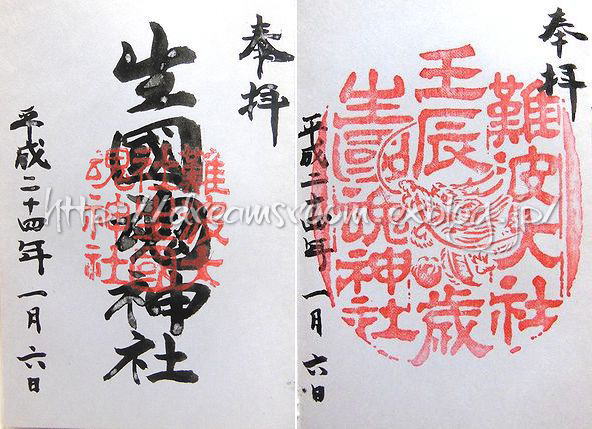 奉拝
生國魂神社
難波大
社生國
魂神社
平成二十四年 一月六日
奉拝
難波大社
壬辰歳
生國魂神社
平成二十四年 一月六日
http://dreamsroom.exblog.jp/